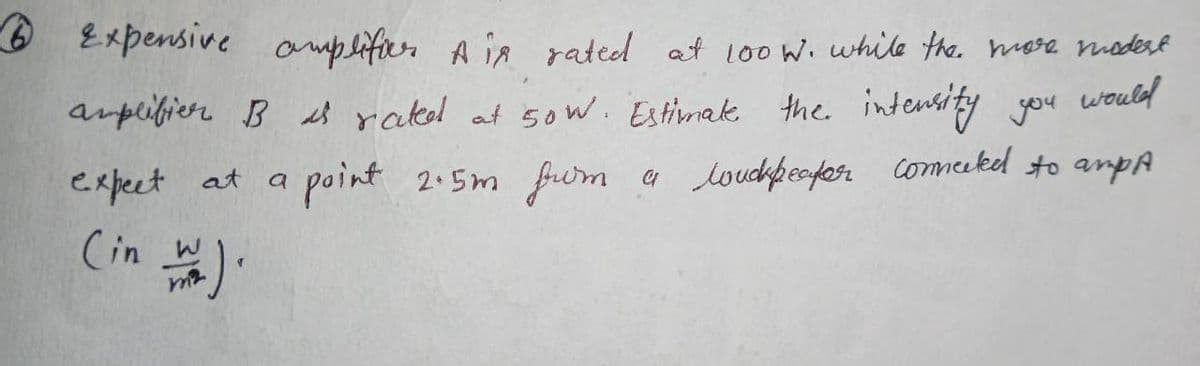 ⑥ Expensive amplifier A is rated at 100 W. while the. more modest
amplifier B is rated at 50W. Estimate the. intensity you would
expect at a point 2.5m from a loudspeaker connected to ampA
(in W/m2).